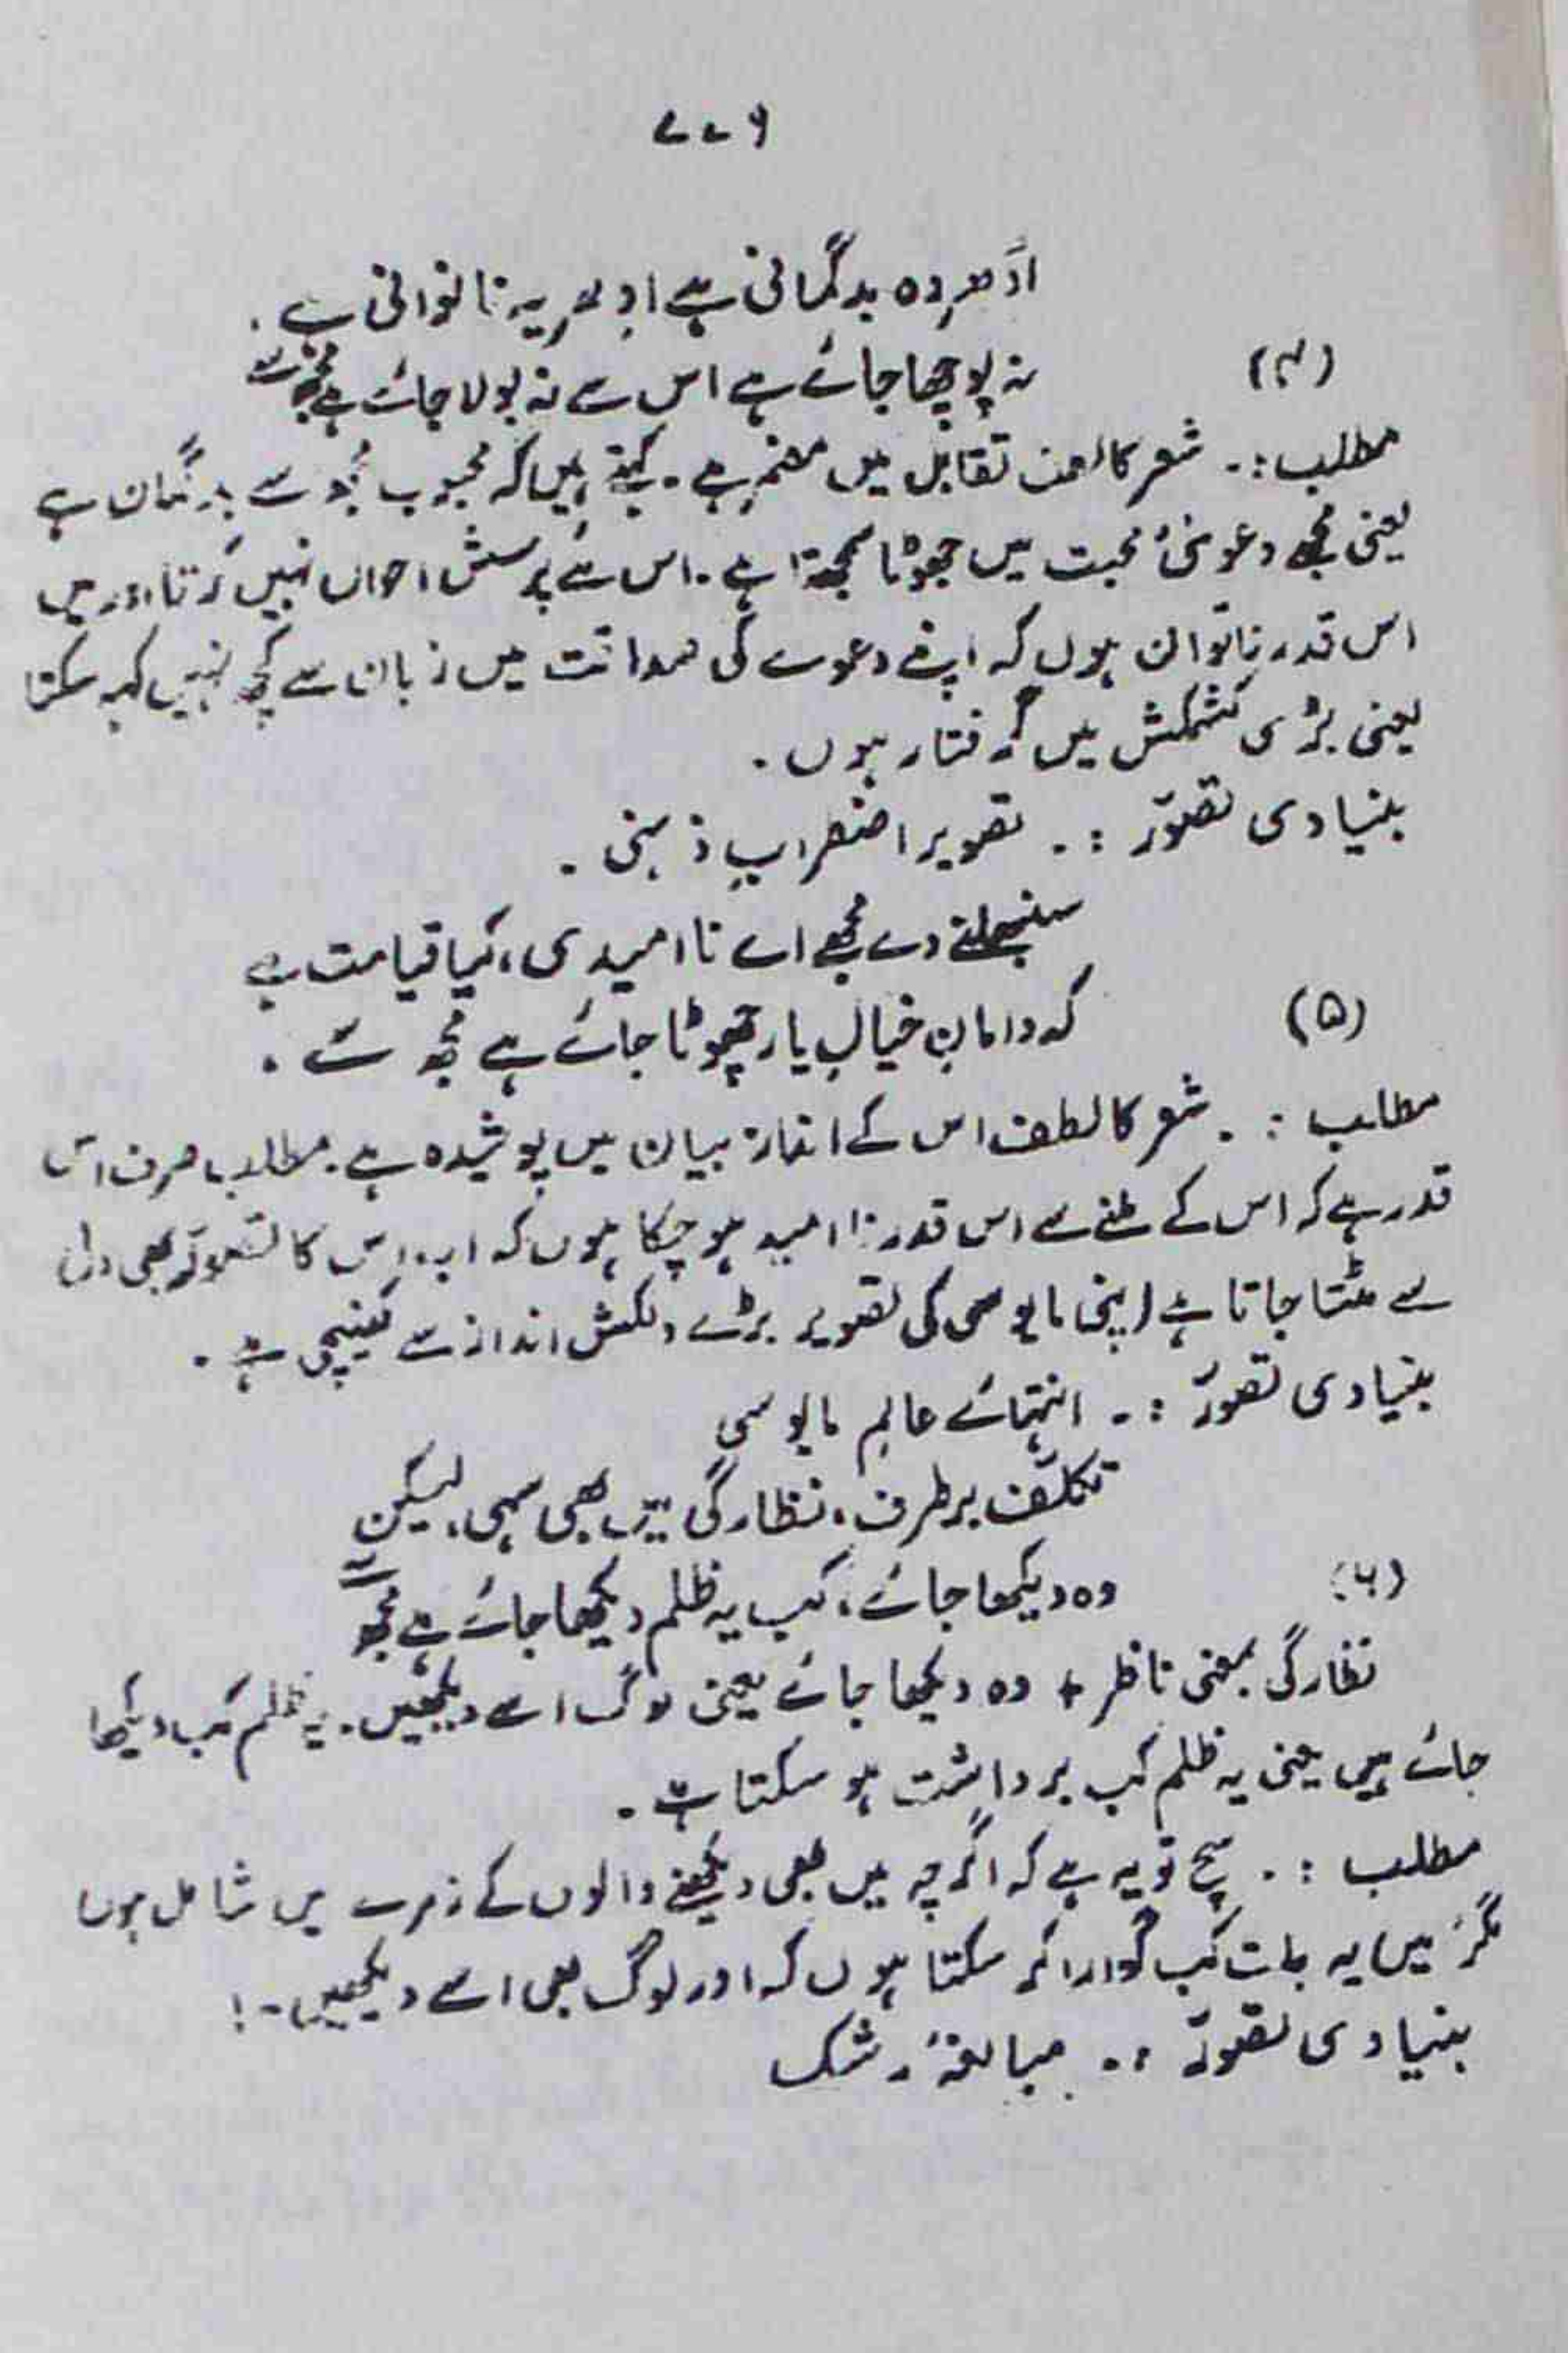 ۶۷۷
ادُھر وہ بدگمانی ہے ادِھر یہ ناتوانی ہے۔
(۴) نہ پوچھا جائے ہے اس سے نہ بولا جائے ہے مجھ سے
مطلب :۔ شعر کا حسن تقابل میں مضمر ہے۔ کہتے ہیں کہ محبوب مجھ سے بدگمان ہے
یعنی مجھے دعویٰٔ محبت میں جھوٹا سمجھتا ہے۔ اس لئے پرسشِ احوال نہیں کرتا اور میں
اس قدر ناتوان ہوں کہ اپنے دعوے کی صداقت میں زبان سے کچھ نہیں کہہ سکتا
یعنی بڑی کشمکش میں گرفتار ہوں۔
بنیادی تصوّر :۔ تصویر اضطرابِ ذہنی۔
سنبھلنے دے مجھے اے ناامیدی، کیا قیامت ہے
(۵) کہ دامانِ خیالِ یار چھوٹا جائے ہے مجھ سے۔
مطلب :۔ شعر کا لطف اس کے انداز بیان میں پوشیدہ ہے۔ مطلب صرف اس
قدر ہے کہ اس کے ملنے سے اس قدر نا امید ہو چکا ہوں کہ اب اس کا تصوّر بھی دل
سے مٹتا جاتا ہے اپنی مایوسی کی تصویر بڑے دلکش انداز سے کھینچی ہے۔
بنیادی تصوّر :۔ انتہائے عالمِ مایوسی
تکلّف برطرف، نظارگی میں بھی سہی، لیکن
(۶) وہ دیکھا جائے، کب یہ ظلم دیکھا جائے ہے مجھ سے
نظارگی بمعنی ناظر + وہ دیکھا جائے یعنی لوگ اسے دیکھیں۔ یہ ظلم کب دیکھا
جائے ہیں یعنی یہ ظلم کب برداشت ہو سکتا ہے۔
مطلب :۔ سچ تو یہ ہے کہ اگرچہ میں بھی دیکھنے والوں کے زمرے میں شامل ہوں
مگر میں یہ بات کب گوارا کر سکتا ہوں کہ اور لوگ بھی اسے دیکھیں۔!
بنیادی تصوّر :۔ مبالغۂ رشک